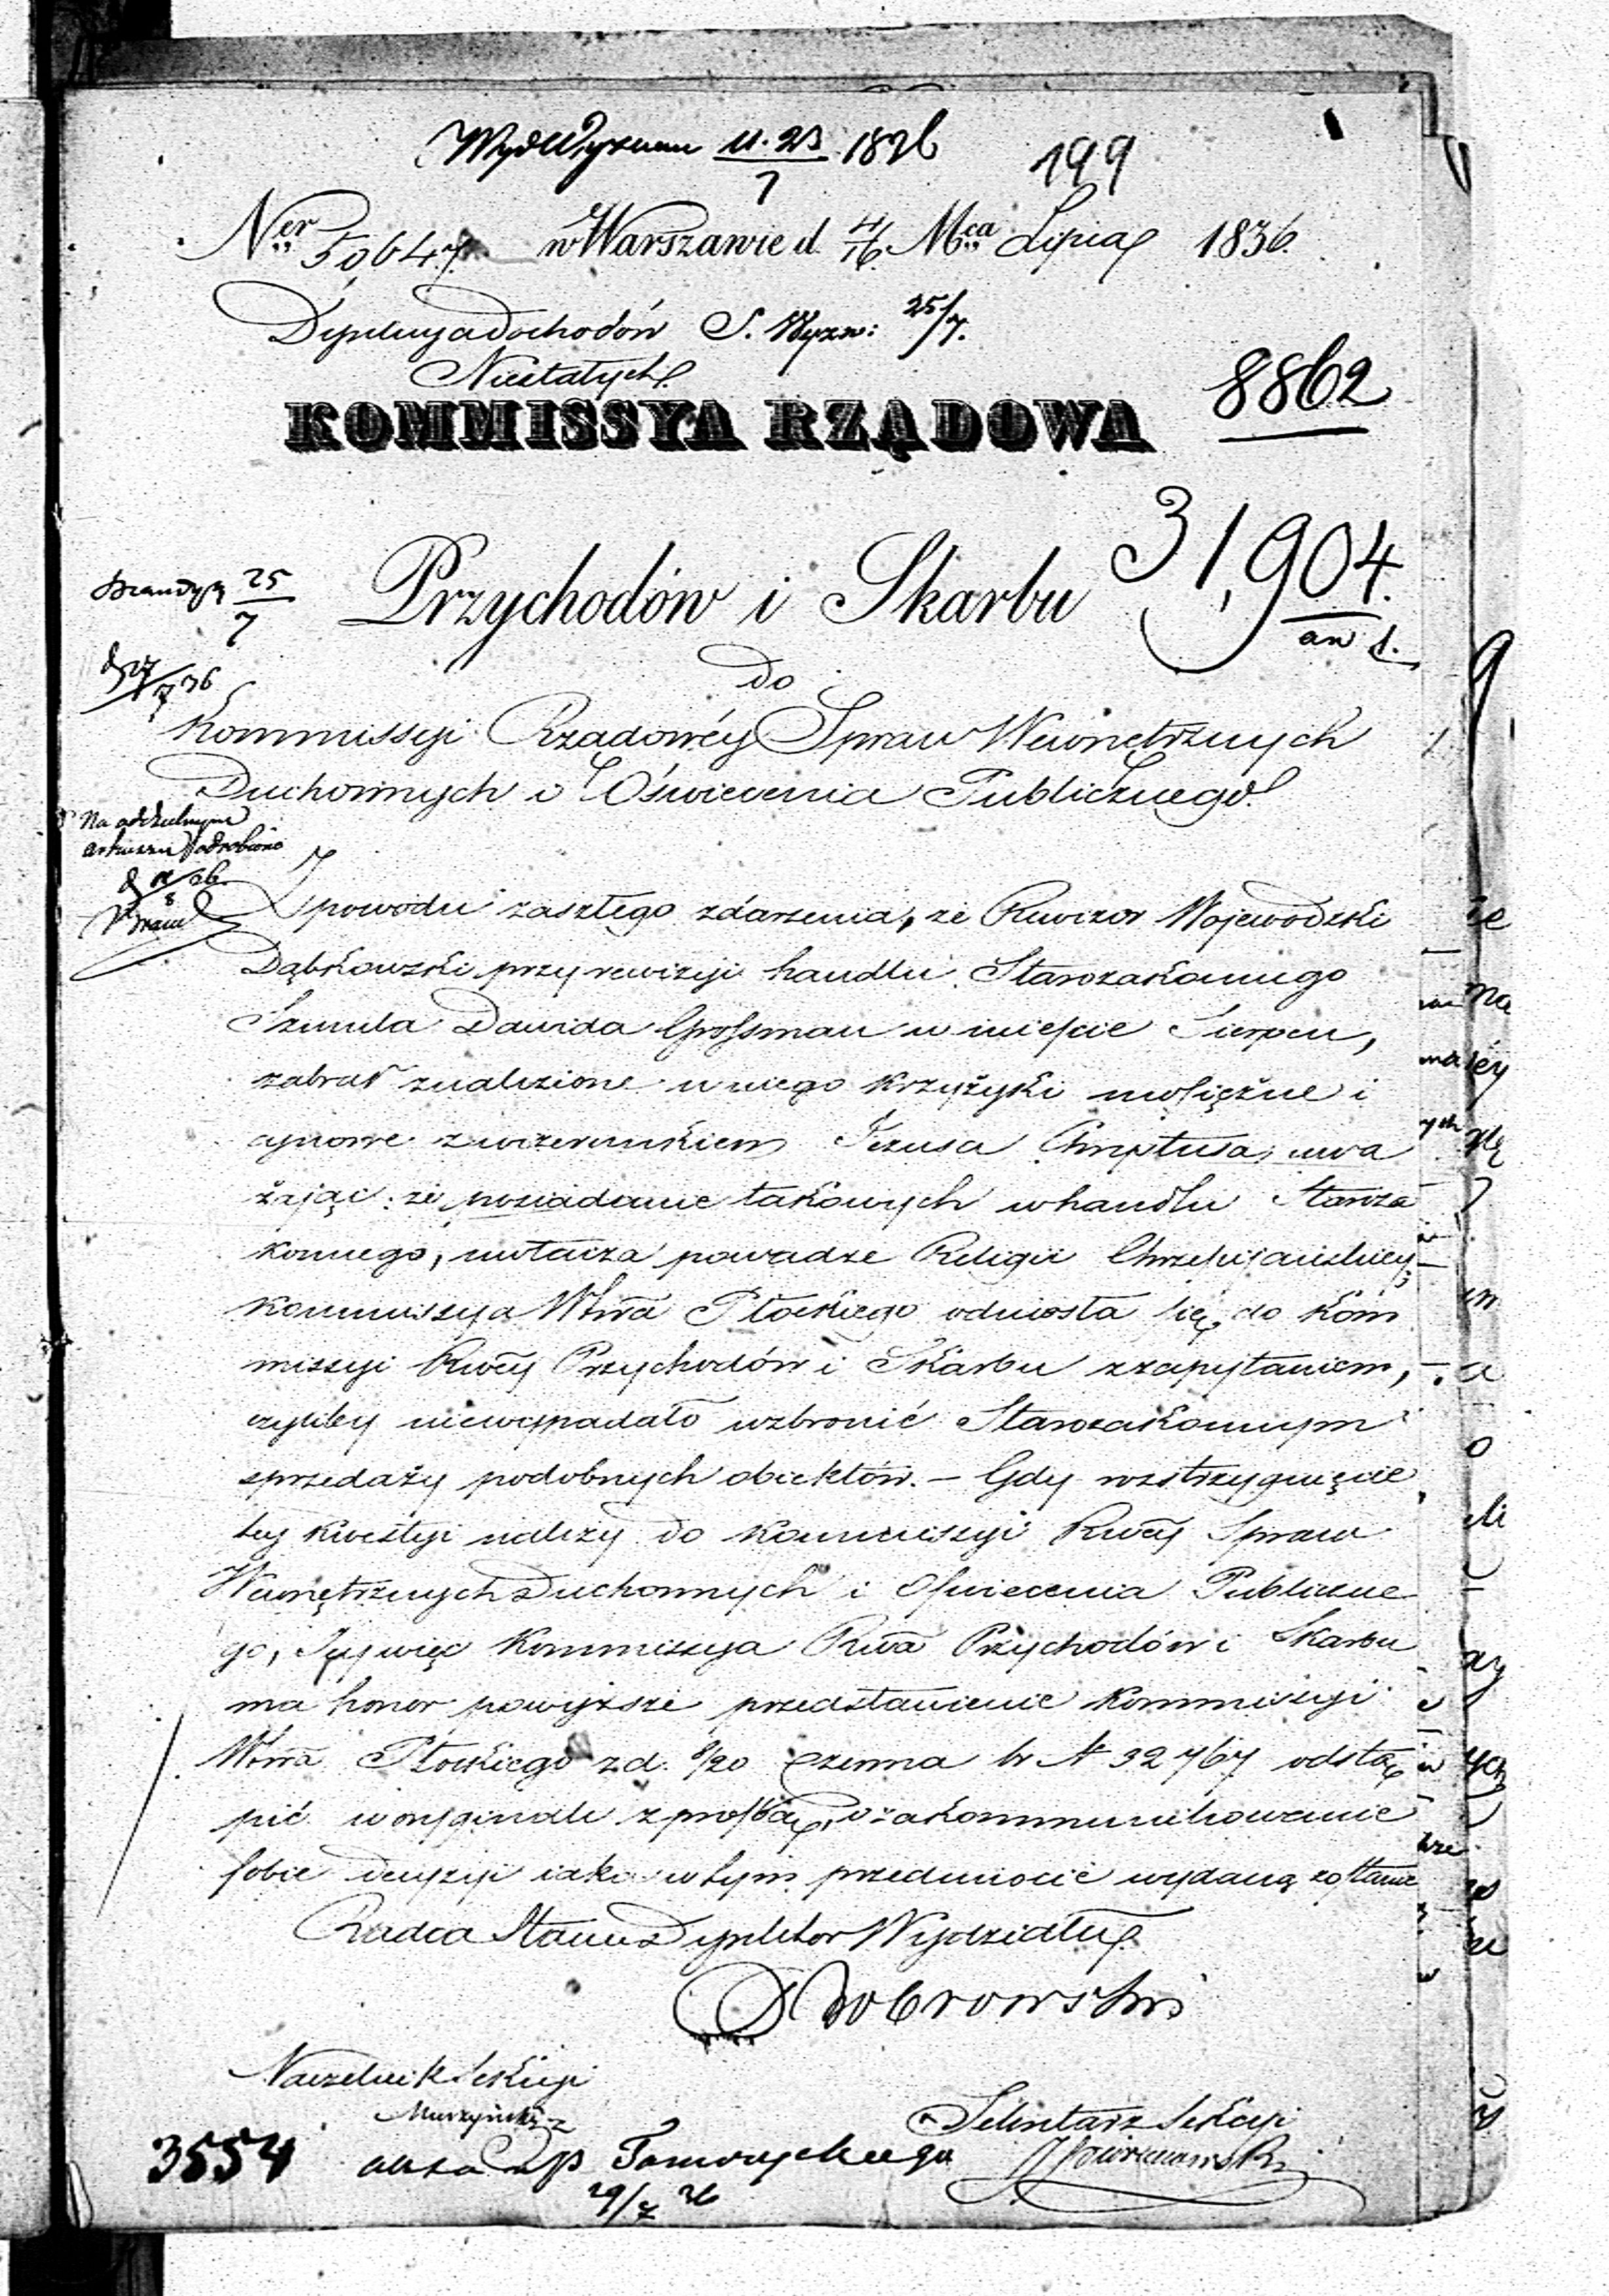 11.23/7 1836 199
Ner 50647. w Warszawie d. 4/16 Mca Lipca 1836.
Dyrekcya Dochodów S. Wyzn: 25/7.
Niestałych
8862
KOMMISSYA RZĄDOWA
31,904.
Przychodów i Skarbu
25/7
do
d 27/7 36
Kommissyi Rządowéy Spraw Wewnętrznych
Duchownych i Oświecenia Publicznego.
Na oddzielnym
arkuszu odrobiono
Z powodu zaszłego zdarzenia, że Rewizor Wojewodzki
Dąbkowski przy rewizyi handlu Starozakonnego
Szmula Dawida Grossman w mieście Sierpcu,
zabrał znalezione u niego krzyżyki mosiężne i
cynowe z wizerunkiem Jezusa Chrystusa, uwa
żając: że posiadanie takowych w handlu Staroza
konnego, uwłacza powadze Religii Chrześcijańskiey,
Kommissya Wwa Płockiego odniosła się do Kom
missyi Rwéy Przychodów i Skarbu z zapytaniem,
czyliby niewypadało wzbronić Starozakonnym
sprzedaży podobnych obiektów. — Gdy rozstrzygnięcie
tey kwestyi należy do Kommissyi Rwéy Spraw
Wewnętrznych Duchownych i Oświecenia Publiczne
go, Jey więc Kommissya Rwa Przychodów i Skarbu
ma honor powyższe przedstawienie Kommissyi
Wwa Płockiego z d. 8/20 Czerwca br N 32767 odstą
pić w oryginale z prośbą, o zakommunikowanie
sobie decyzyi iaka w tym przedmiocie wydaną zostanie
Radca Stanu Dyrektor Wydziału
Dobrowski
Naczelnik Sekcyi
Murzyński
Sekretarz Sekcyi
3554
29/7 36